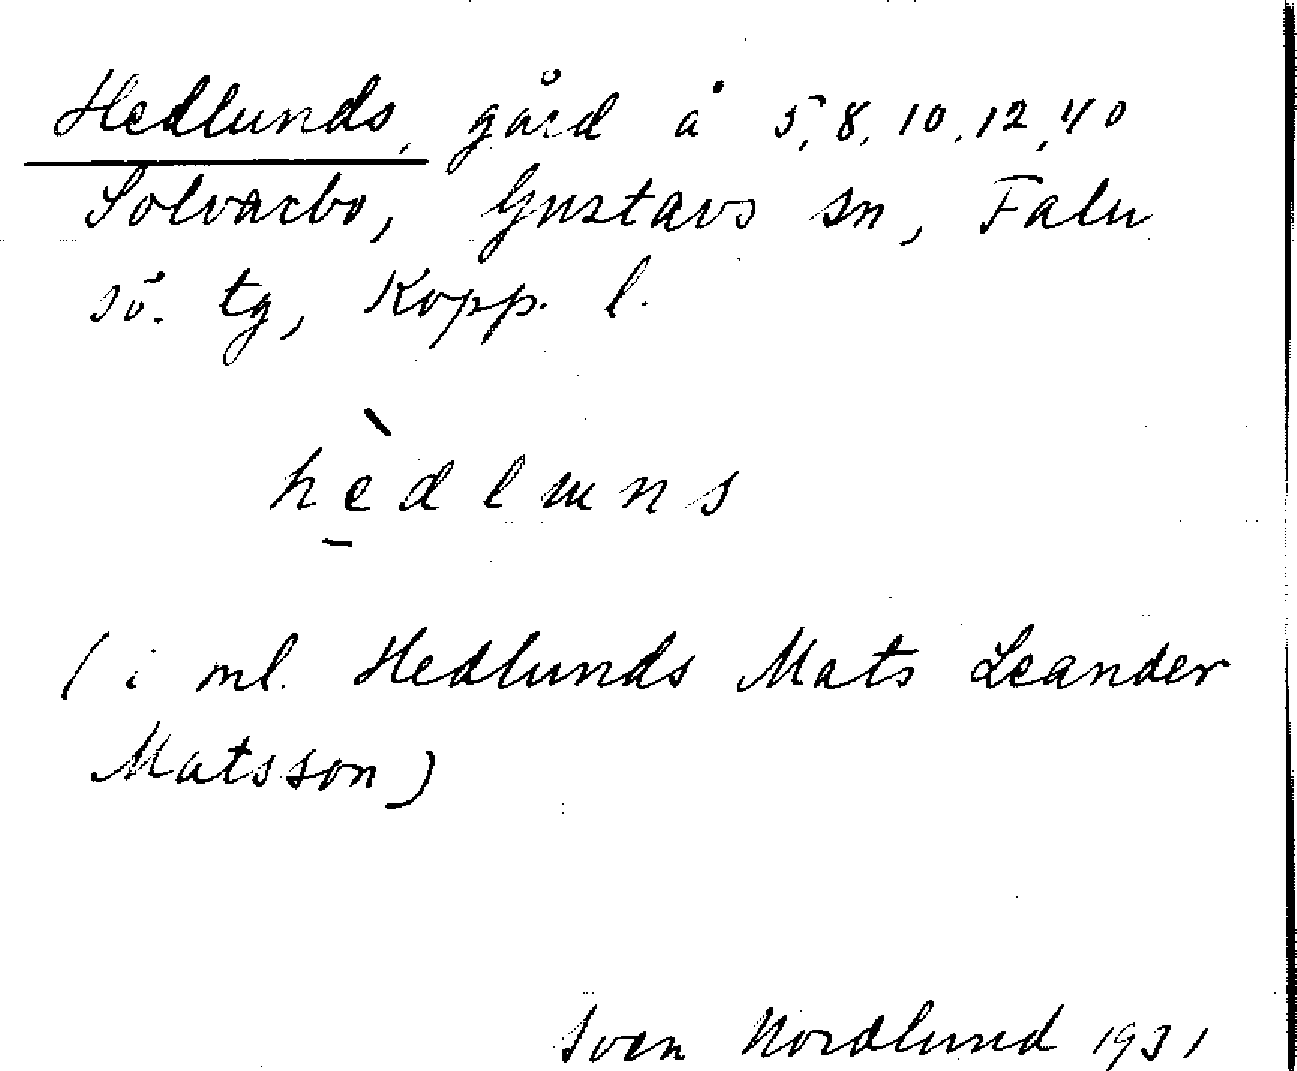 Hedlunds, gård å 5, 8, 10, 12, 40
Solvarbo, Gustavs sn, Falu
sö. tg, Kopp. l.
hèdluns
(i ml. Hedlunds Mats Leander
Matsson)
Sven Nordlund 1931